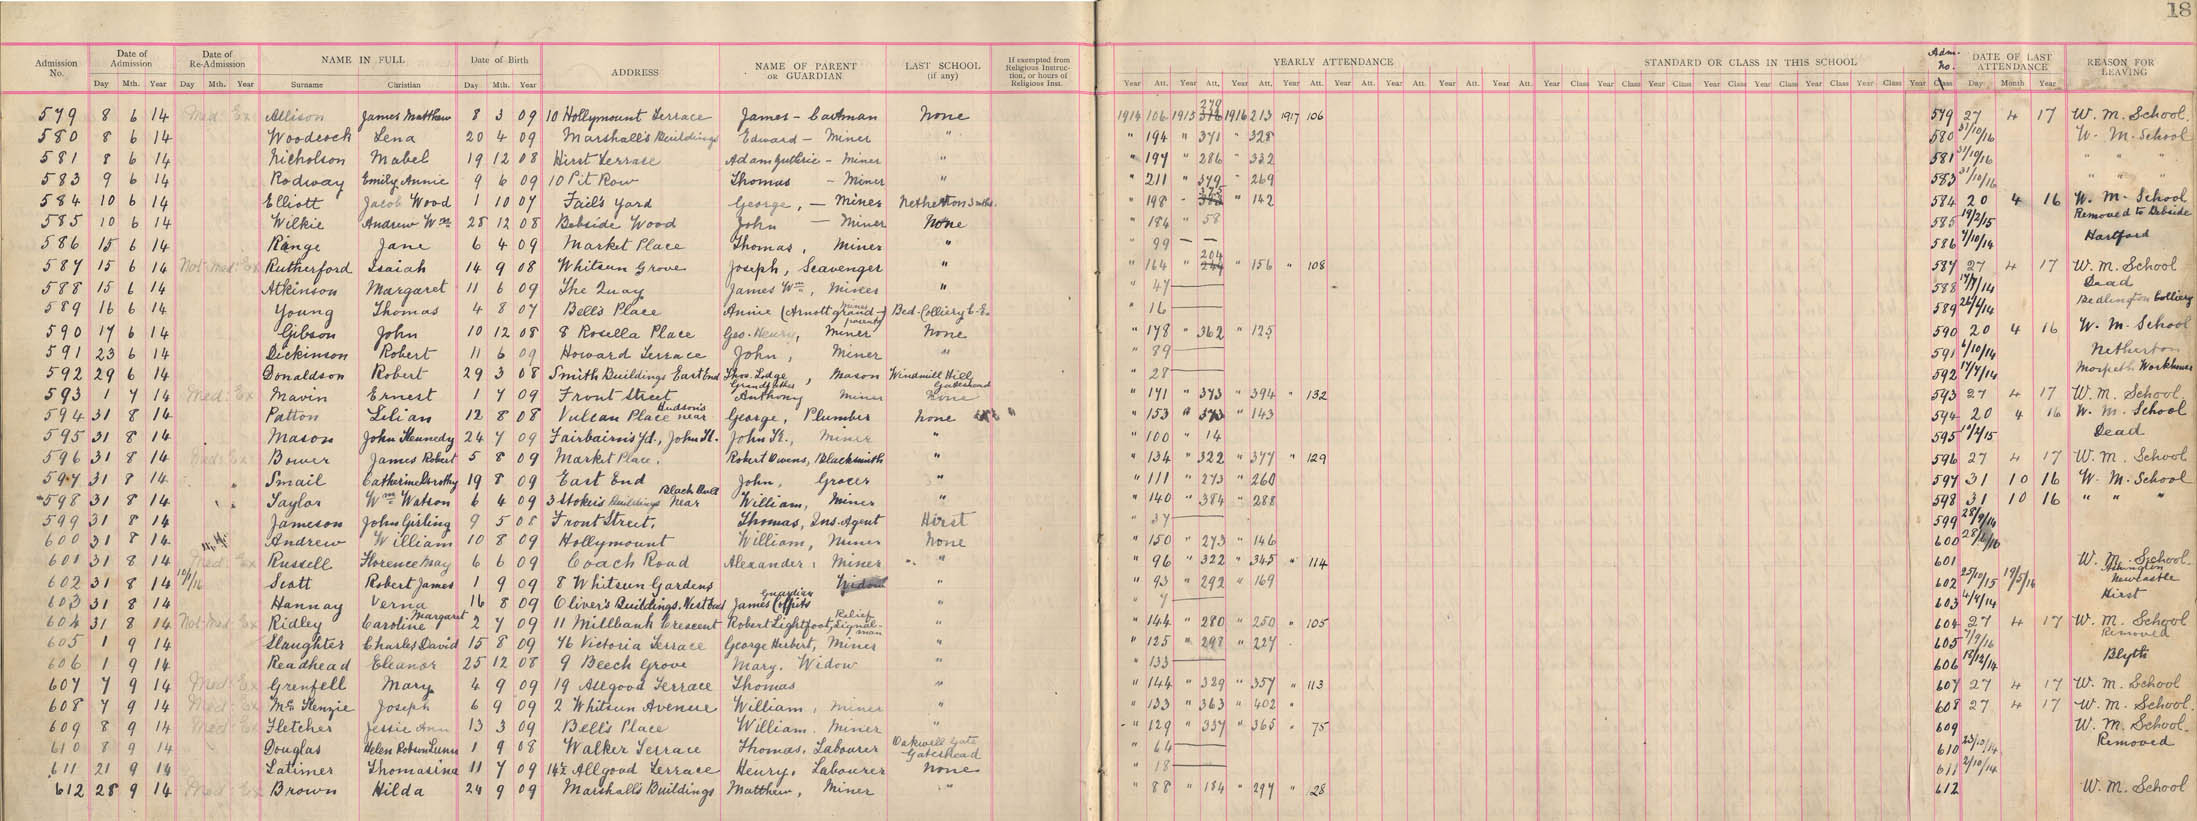 18
Admission No. Date of Admission Date of Re-Admission NAME IN FULL Date of Birth ADDRESS NAME OF PARENT OR GUARDIAN LAST SCHOOL (if any) If exempted from Religious Instruction, or hours of Religious Inst. YEARLY ATTENDANCE STANDARD OR CLASS IN THIS SCHOOL Adm. No. DATE OF LAST ATTENDANCE REASON FOR LEAVING
Day Mth. Year Day Mth. Year Surname Christian Day Mth. Year Year Att. Year Att. Year Att. Year Att. Year Att. Year Att. Year Att. Year Att. Year Class Year Class Year Class Year Class Year Class Year Class Year Class Year Class Year Class Day Month Year
579 8 6 14 Med: Ex Allison James Matthew 8 3 09 10 Hollymount Terrace James - Cartman None 1914 106 1915 279 1916 213 1917 106 579 27 4 17 W. M. School.
580 8 6 14 Woodcock Lena 20 4 09 Marshall's Buildings Edward - Miner " " 194 " 371 " 328 580 31/10/16 W. M. School
581 8 6 14 Nicholson Mabel 19 12 08 Hirst Terrace Adam Guthrie - Miner " " 197 " 286 " 332 581 31/10/16 " " "
583 9 6 14 Rodway Emily Annie 9 6 09 10 Pit Row Thomas - Miner " " 211 " 379 " 269 583 31/10/16 " " "
584 10 6 14 Elliott Jacob Wood 1 10 07 Fail's Yard George, - Miner Netherton 3 mths. " 198 - 375 " 142 584 20 4 16 W. M. School
585 10 6 14 Wilkie Andrew Wm 28 12 08 Bebside Wood John - Miner None " 184 " 58 585 19/2/15 Removed to Bebside
586 15 6 14 Range Jane 6 4 09 Market Place Thomas, Miner " " 99 - - 586 /10/14 Hartford
587 15 6 14 Not Med: Ex Rutherford Isaiah 14 9 08 Whitsun Grove Joseph, Scavenger " " 164 " 204 " 156 " 108 587 27 4 17 W. M. School
588 15 6 14 Atkinson Margaret 11 6 09 The Quay James Wm, Miner " " 47 588 17/7/14 Dead
589 16 6 14 Young Thomas 4 8 07 Bell's Place Annie (Arnott grand-parents) miner Bed-Colliery C.E. " 16 589 /14 Bedlington Colliery
590 17 6 14 Gibson John 10 12 08 8 Rosella Place Geo. Henry, Miner None " 178 " 362 " 125 590 20 4 16 W. M. School
591 23 6 14 Dickinson Robert 11 6 09 Howard Terrace John, Miner " " 89 591 6/10/14 Netherton
592 29 6 14 Donaldson Robert 29 3 08 Smith Buildings East End Thos. Lodge Grandfather, Mason Windmill Hill Gateshead " 28 592 17/7/14 Morpeth Workhouse
593 1 7 14 Med: Ex Mavin Ernest 1 7 09 Front Street Anthony Miner None " 171 " 373 " 394 " 132 593 27 4 17 W. M. School.
594 31 8 14 Patton Lilian 12 8 08 Vulcan Place near Hudson's George, Plumber None " 153 " 373 " 143 594 20 4 16 W. M. School
595 31 8 14 Mason John Kennedy 24 7 09 Fairbairn's Yd., John St. John K., Miner " " 100 " 14 595 10/2/15 Dead
596 31 8 14 Med: Ex Bower James Robert 5 8 09 Market Place. Robert Owens, Blacksmith " " 134 " 322 " 377 " 129 596 27 4 17 W. M. School
597 31 8 14 Smail Catherine Dorothy 19 8 09 East End John, Grocer " " 111 " 273 " 260 597 31 10 16 W. M. School
598 31 8 14 Taylor Wm Watson 6 4 09 3 Stoker's Buildings Near Black Bull William, Miner " " 140 " 384 " 288 598 31 10 16 " " "
599 31 8 14 Jameson John Girling 9 5 08 Front Street, Thomas, Ins. Agent Hirst " 37 599 28/9/14
600 31 8 14 Andrew William 10 8 09 Hollymount William, Miner None " 150 " 273 " 146 600 28/6/16
601 31 8 14 Med: Ex Russell Florence May 6 6 09 Coach Road Alexander, Miner " " 96 " 322 " 345 " 114 601 W. M. School.
602 31 8 14 10/1/16 Scott Robert James 1 9 09 8 Whitsun Gardens Widow " " 93 " 292 " 169 602 25/10/15 19/5/16 Ashington Newcastle
603 31 8 14 Hannay Verna 16 8 09 Oliver's Buildings, West End James Coffits guardian " " 7 603 4/9/14 Hirst
604 31 8 14 Not Med: Ex Ridley Caroline Margaret 2 7 09 11 Millbank Crescent Robert Lightfoot, Relief Signal-man " " 144 " 280 " 250 " 105 604 27 4 17 W. M. School
605 1 9 14 Slaughter Charles David 15 8 09 76 Victoria Terrace George Herbert, Miner " " 125 " 298 " 227 605 7/9/16 Removed
606 1 9 14 Readhead Eleanor 25 12 08 9 Beech Grove Mary, Widow " " 133 606 18/12/14 Blyth
607 7 9 14 Med: Ex Grenfell Mary 4 9 09 19 Allgood Terrace Thomas " " 144 " 329 " 357 " 113 607 27 4 17 W. M. School
608 7 9 14 Med: Ex McKenzie Joseph 6 9 09 2 Whitsun Avenue William, Miner " " 133 " 363 " 402 " 608 27 4 17 W. M. School.
609 8 9 14 Med: Ex Fletcher Jessie Ann 13 3 09 Bell's Place William, Miner " " 129 " 337 " 365 " 75 609 W. M. School.
610 8 9 14 Douglas Helen Robson Lunn 1 9 08 Walker Terrace Thomas, Labourer Oakwell Gate Gateshead " 64 610 23/10/14 Removed
611 21 9 14 Latimer Thomasina 11 7 09 142 Allgood Terrace Henry, Labourer None " 18 611 2/10/14
612 28 9 14 Med: Ex Brown Hilda 24 9 09 Marshall's Buildings Matthew, Miner " " 88 " 184 " 297 " 28 612 W. M. School